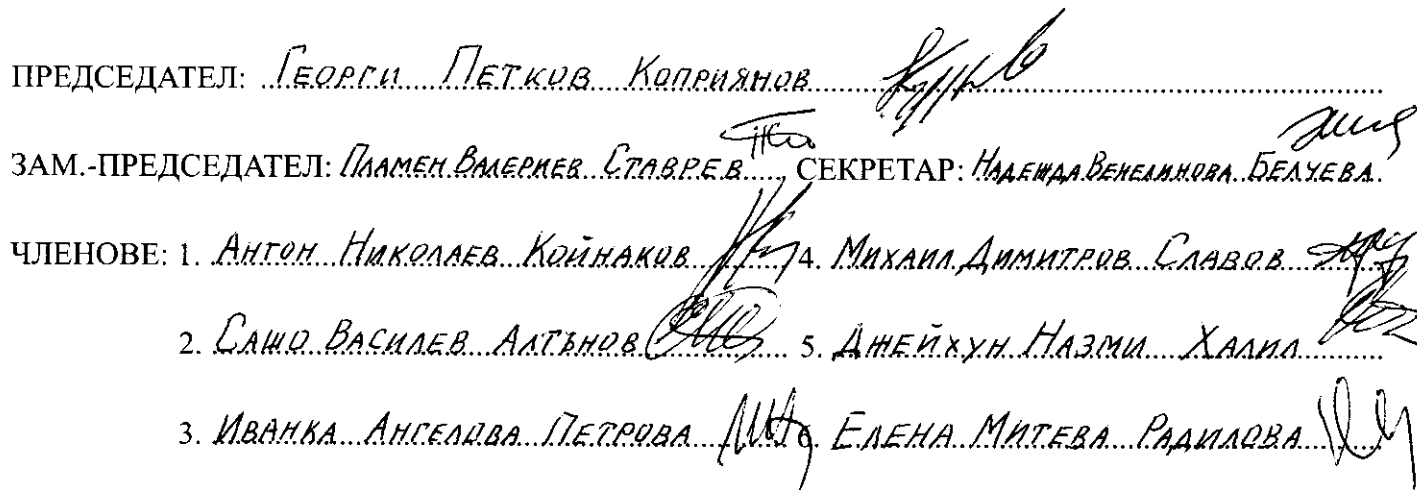 ПРЕДСЕДАТЕЛ: ГЕОРГИ ПЕТКОВ КОПРИЯНОВ
ЗАМ.-ПРЕДСЕДАТЕЛ: ПЛАМЕН ВАЛЕРИЕВ СТАВРЕВ, СЕКРЕТАР: НАДЕЖДА ВЕНЕЛИНОВА БЕЛЧЕВА
ЧЛЕНОВЕ: 1. АНТОН НИКОЛАЕВ КОЙНАКОВ 4. МИХАИЛ ДИМИТРОВ СЛАВОВ
2. САШО ВАСИЛЕВ АЛТЪНОВ 5. ДЖЕЙХУН НАЗМИ ХАЛИЛ
3. ИВАНКА АНГЕЛОВА ПЕТРОВА ЕЛЕНА МИТЕВА РАДИЛОВА